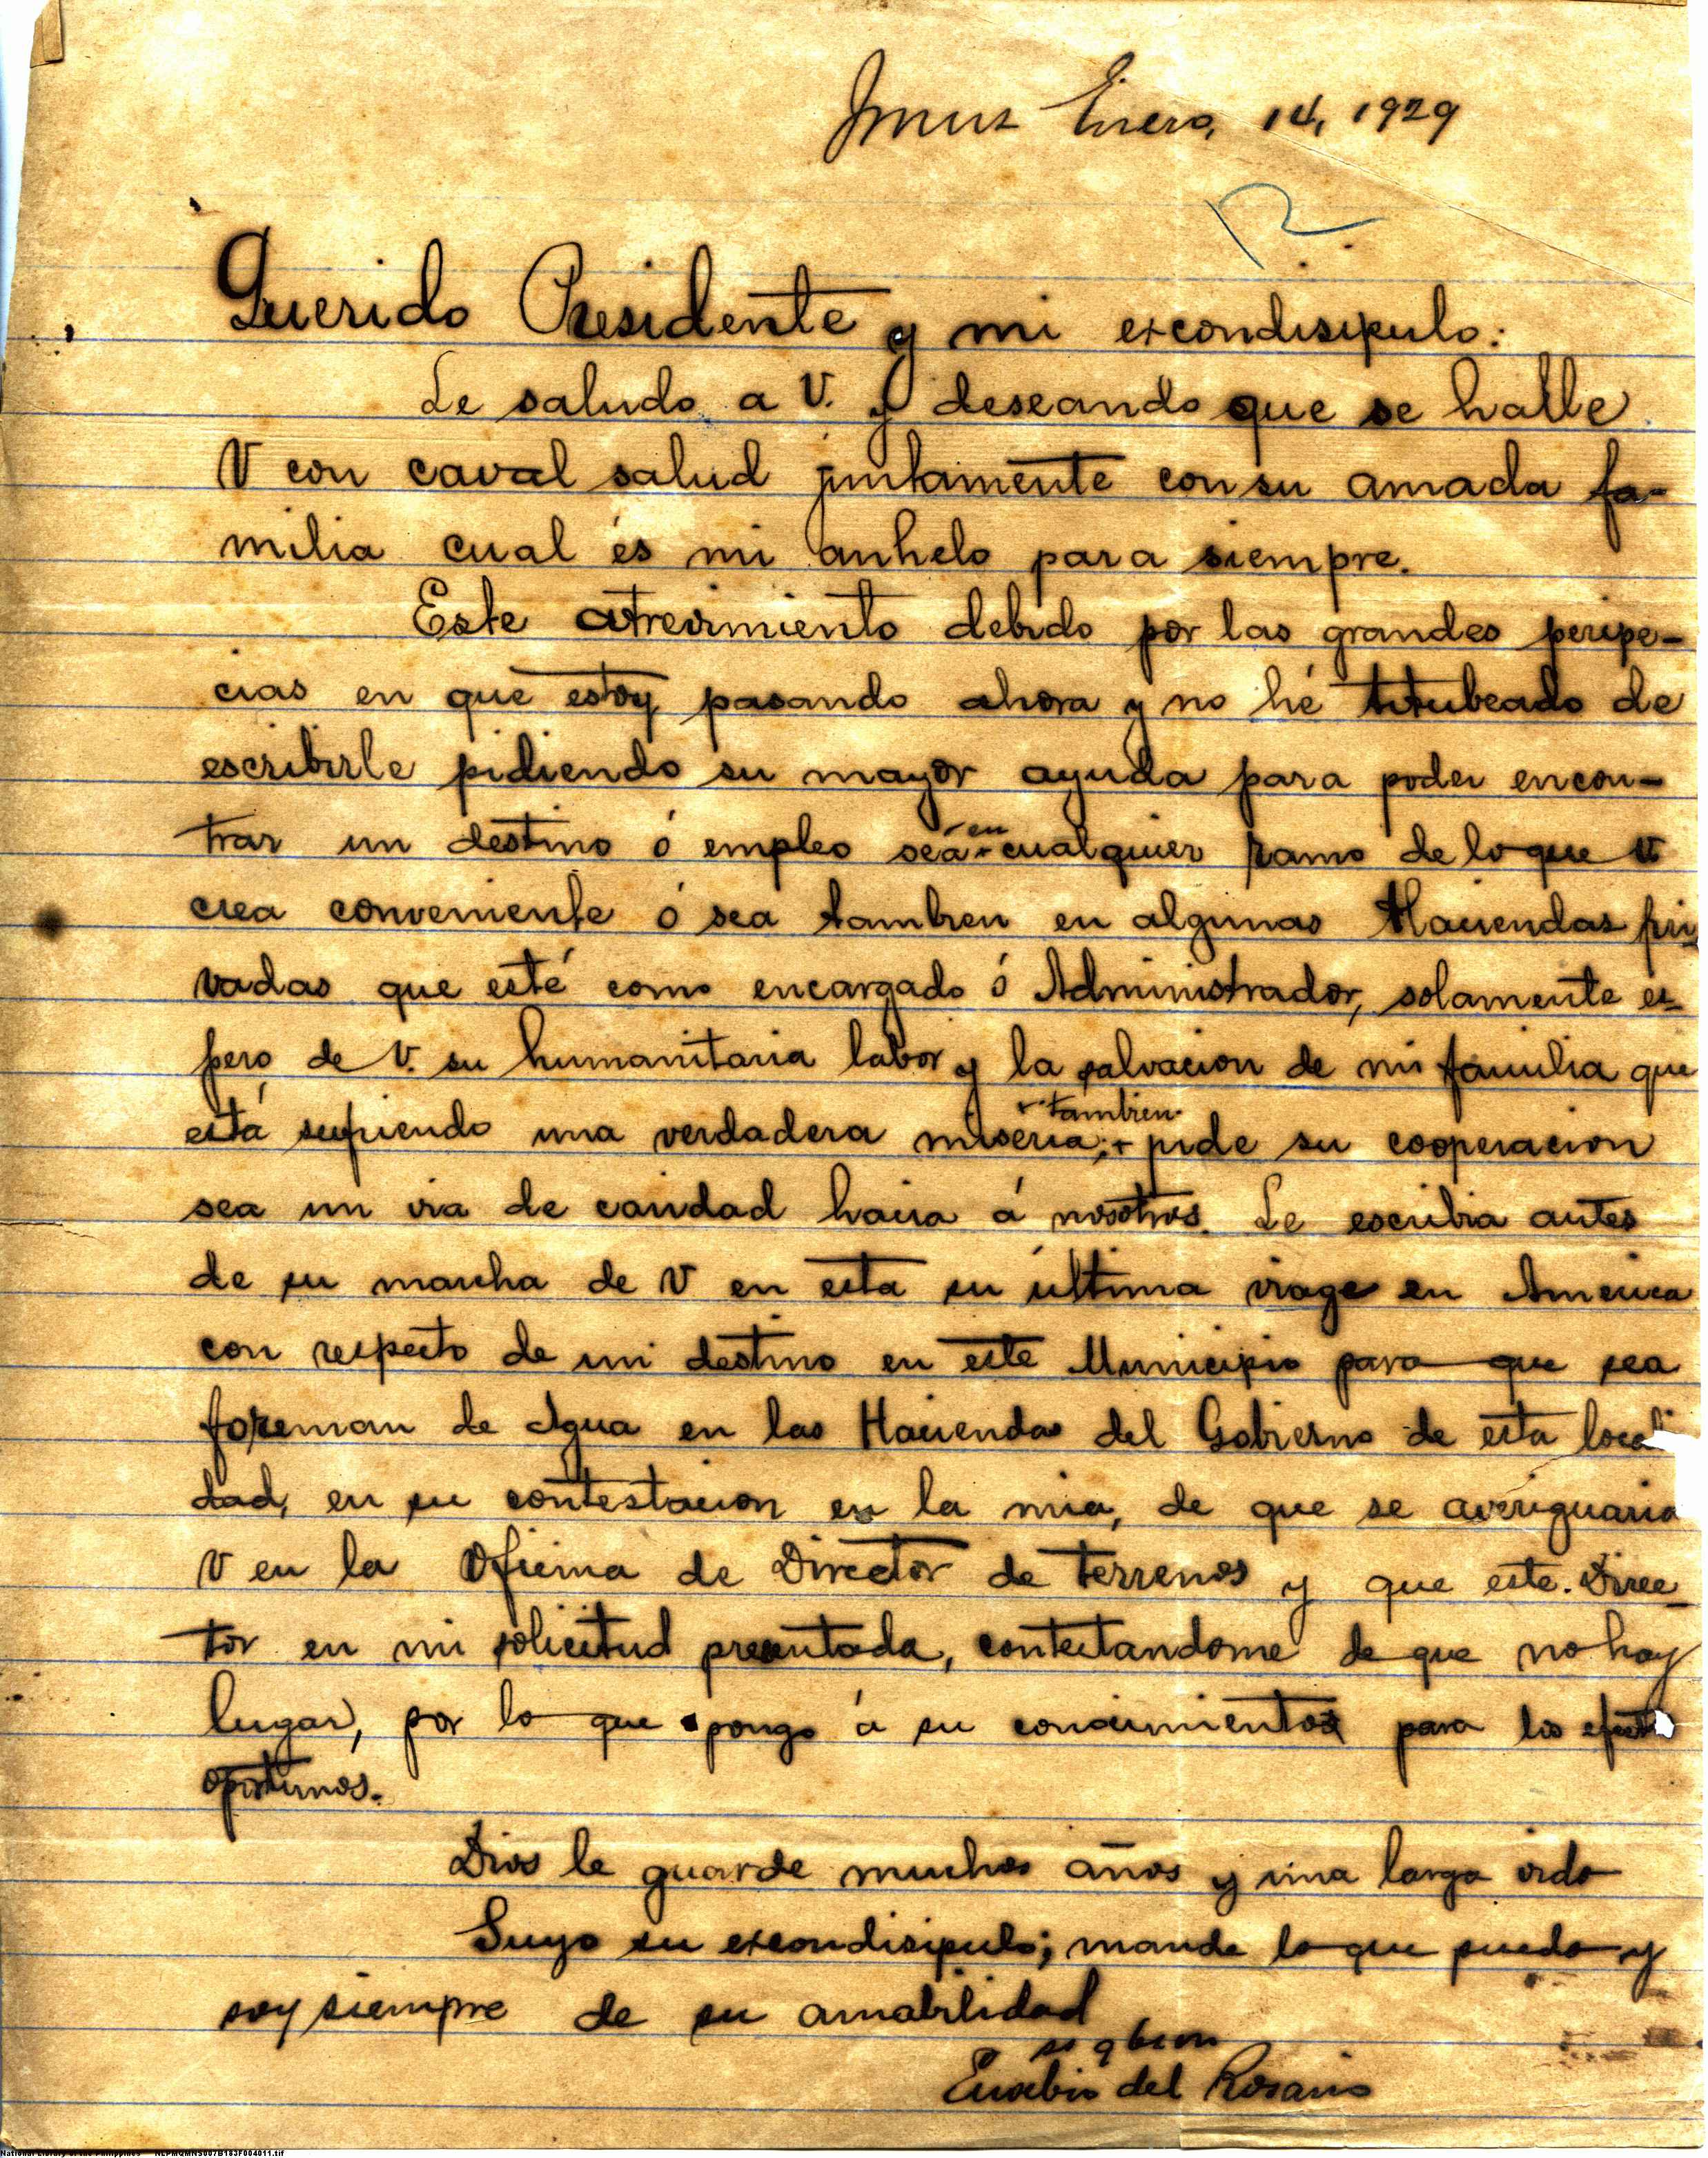 Imus Enero, 14, 1929
Querido Presidente y mi excondisipulo:
Le saludo a V. y deseando que se halle
V con caval salud juntamente con su amada fa-
milia cual és mi anhelo para siempre.
Este atrevimiento debido por las grandes peripe-
cias en que estoy pasando ahora y no hé titubeado de
escribirle pidiendo su mayor ayuda para poder encon-
trar un destino ó empleo sea en cualquier ramo de lo que V
crea conveniente ó sea tambien en algunas Haciendas pri
vadas que esté como encargado ó Administrador, solamente es-
pero de V. su humanitaria labor y la salvacion de mi familia que
está sufriendo una verdadera miseria; + tambien pide su cooperacion
sea un via de caridad hacia á nosotros. Le escribia antes
de su marcha de V en esta su última viage en America
con respecto de mi destino en este Municipio para que sea
foreman de Agua en las Haciendas del Gobierno de esta locali
dad, en su contestacion en la mia, de que se averiguaria
V en la Oficina de Director de terrenos y que este. Direc-
tor en mi solicitud presentada, contestandome de que no hay
lugar, por lo que pongo á su conocimiento para los
oportunos.
Dios le guarde muchos años y una larga vida
Suyo su excondisipulo; mande lo que puedo y
soy siempre de su amabilidad
Eusebio del Rosario
National Library of the Philippines NLPMQMNS007B183F004011.tif